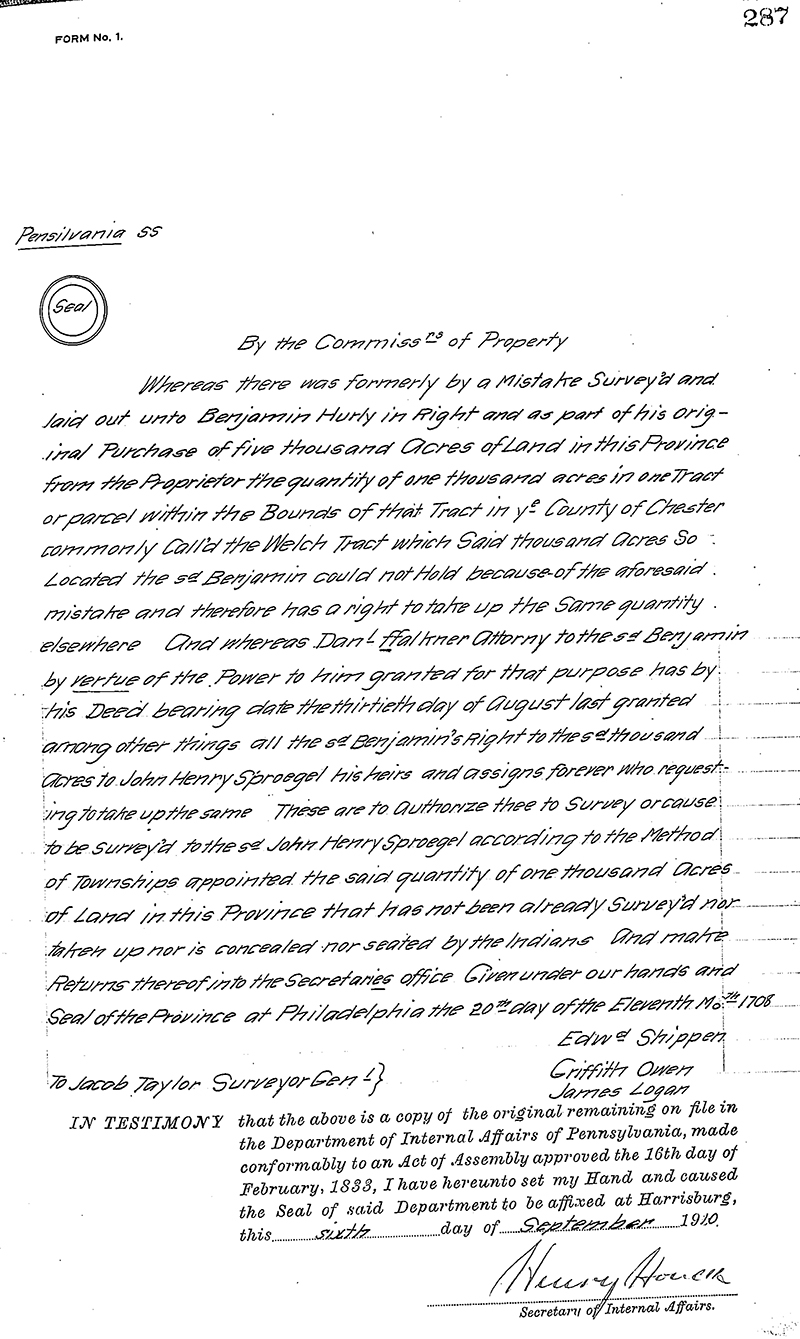 287
FORM No. 1.
Pensilvania SS
Seal
By the Commissrs of Property
Whereas there was formerly by a Mistake Survey'd and
laid out unto Benjamin Hurly in Right and as part of his orig-
inal Purchase of five thousand Acres of Land in this Province
from the Proprietor the quantity of one thousand acres in one Tract
or parcel within the Bounds of that Tract in ye County of Chester
commonly Call'd the Welch Tract which Said thousand Acres So
Located the sd Benjamin could not Hold because of the aforesaid
mistake and therefore has a right to take up the Same quantity
elsewhere And whereas Danl ffalkner Attorny to the sd Benjamin
by vertue of the Power to him granted for that purpose has by
his Deed bearing date the thirtieth day of August last granted
among other things all the sd Benjamin's Right to the sd thousand
Acres to John Henry Sproegel his heirs and assigns forever who request-
ing to take up the same These are to Authorize thee to Survey or cause
to be Survey'd to the sd John Henry Sproegel according to the Method
of Townships appointed the said quantity of one thousand Acres
of Land in this Province that has not been already Survey'd nor
taken up nor is concealed nor seated by the Indians And make
Returns thereof into the Secretaries office Given under our hands and
Seal of the Province at Philadelphia the 20th day of the Eleventh Moth 1708
Edwd Shippen
Griffith Owen
James Logan
To Jacob Taylor Surveyor Genl}
IN TESTIMONY that the above is a copy of the original remaining on file in
the Department of Internal Affairs of Pennsylvania, made
conformably to an Act of Assembly approved the 16th day of
February, 1833, I have hereunto set my Hand and caused
the Seal of said Department to be affixed at Harrisburg,
this sixth day of September 1910.
Henry Houck
Secretary of Internal Affairs.
287